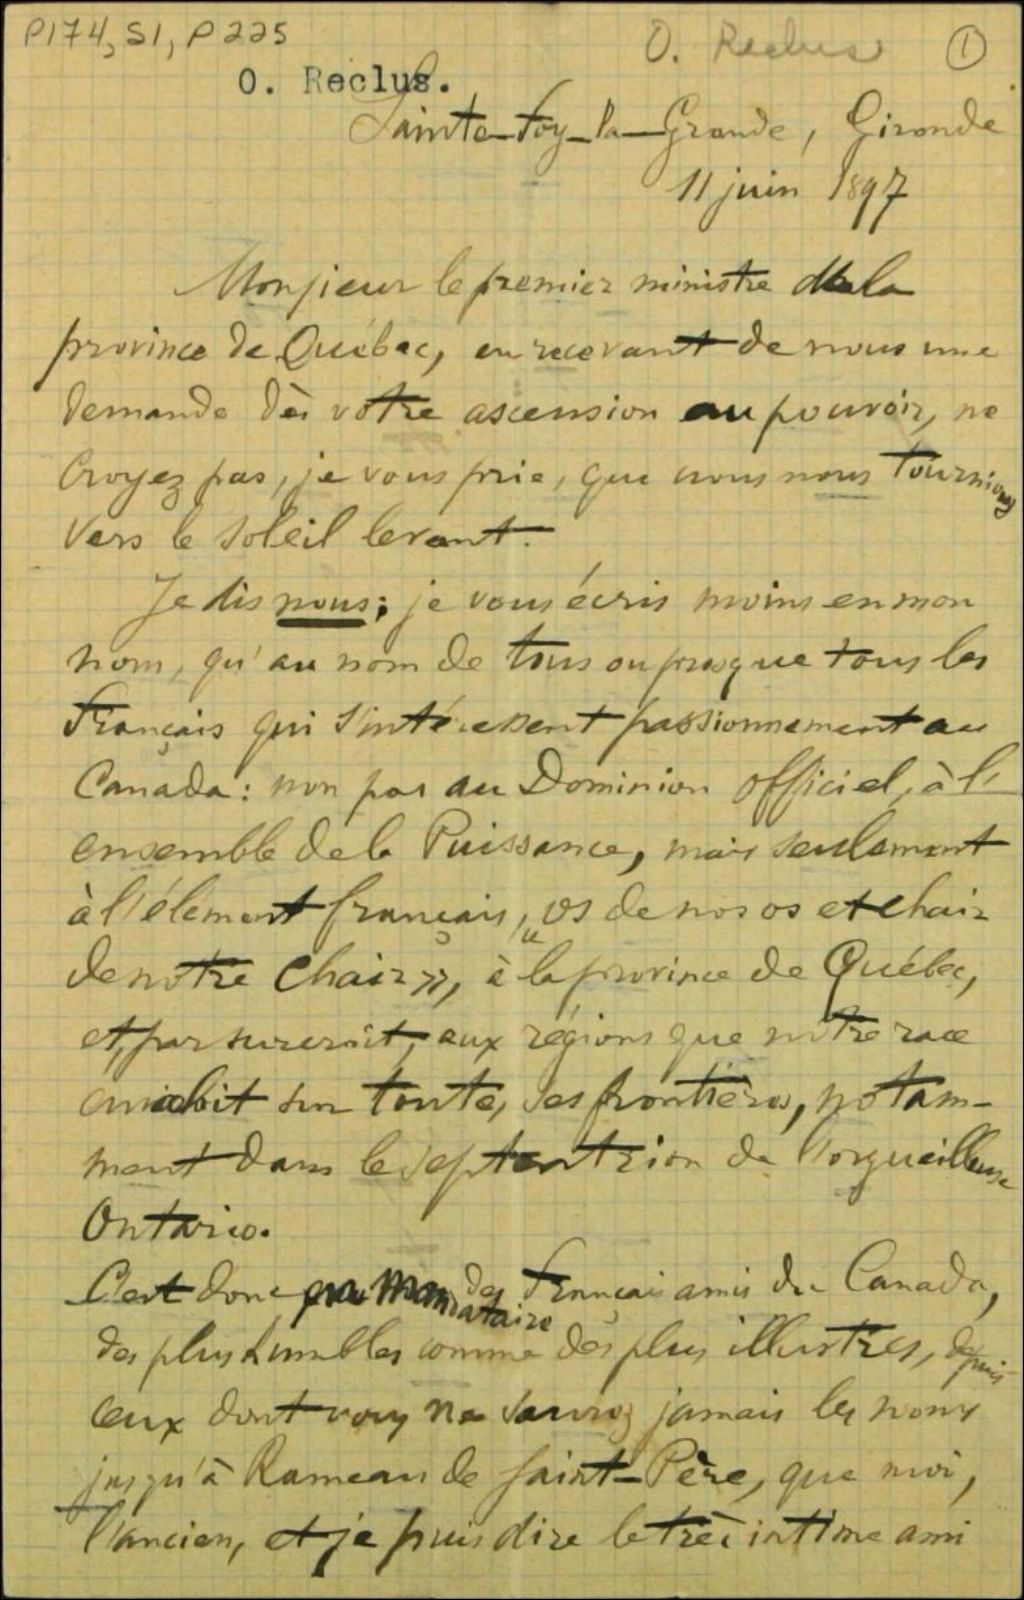 P174, S1, P225
O. Reclus ①
O. Reclus.
Sainte-Foy-la-Grande, Gironde
11 juin 1897
Monsieur le premier ministre de la
province de Québec, en recevant de nous une
demande dès votre ascension au pouvoir, ne
croyez pas, je vous prie, que nous nous tournions
vers le soleil levant.
Je dis nous; je vous écris moins en mon
nom, qu'au nom de tous ou presque tous les
Français qui s'intéressent passionnement au
Canada: non pas au Dominion officiel, à l'
ensemble de la Puissance, mais seulement
à l'élément français, "os de nos os et chair
de notre chair», à la province de Québec,
et, par surcroît, aux régions que notre race
envahit sur toutes ses frontières, notam-
ment dans le septentrion de l'orgueilleuse
Ontario.
C'est donc mandataire des Français amis du Canada,
des plus humbles comme des plus illustres, depuis
ceux dont vous ne saurez jamais les noms
jusqu'à Rameau de Saint-Père, que moi,
l'ancien, et je puis dire le très intime ami